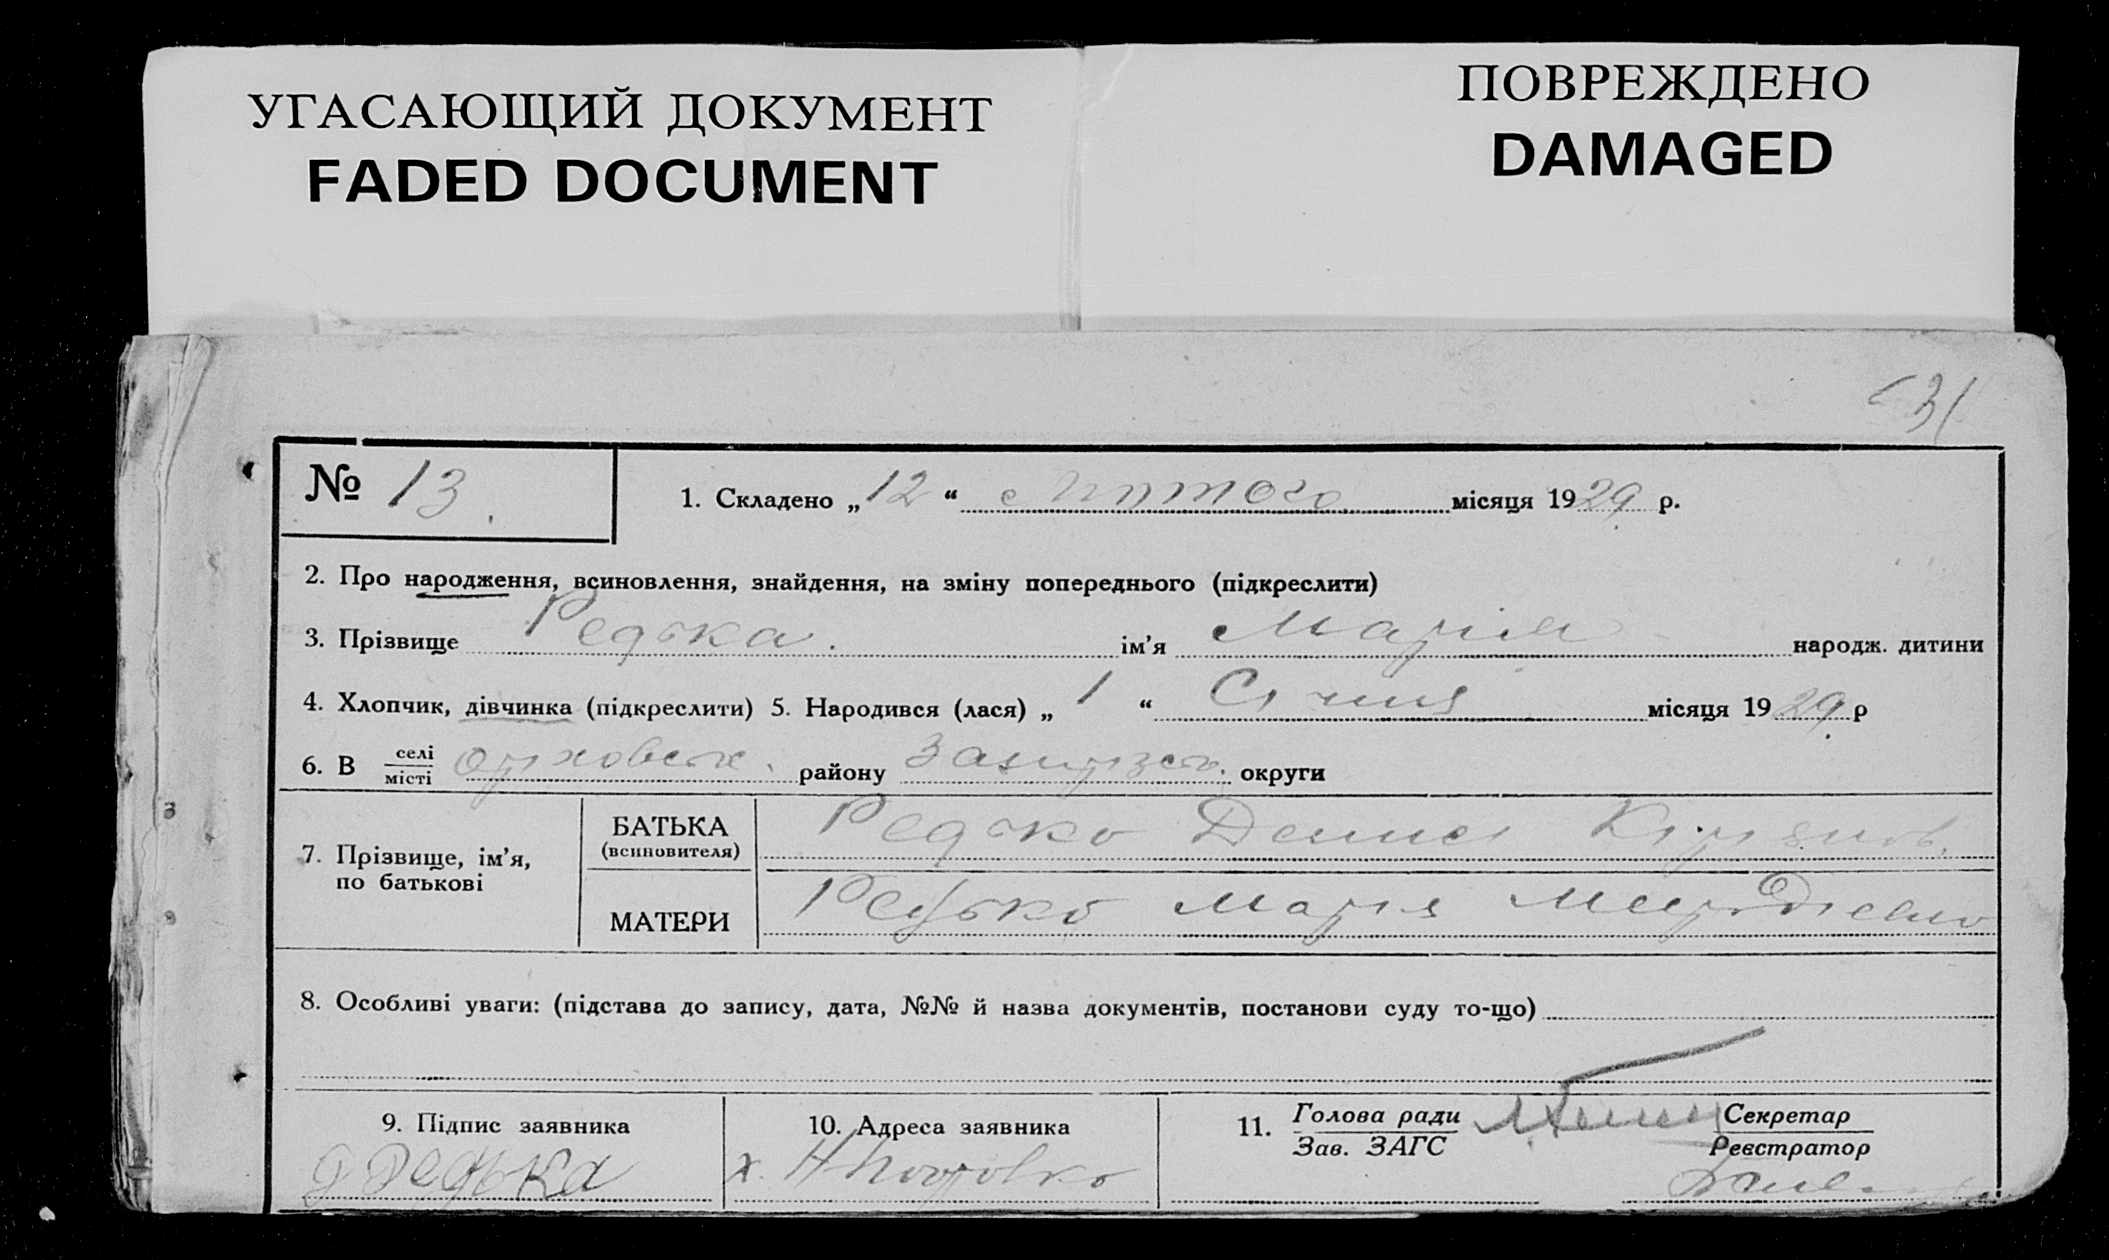 УГАСАЮЩИЙ ДОКУМЕНТ
FADED DOCUMENT
ПОВРЕЖДЕНО
DAMAGED
31
№ 13
1. Складено „ 12 “ Лютого місяця 1929 р.
2. Про народження, всиновлення, знайдення, на зміну попереднього (підкреслити)
3. Прізвище Редька. ім’я Марія народж. дитини
4. Хлопчик, дівчинка (підкреслити) 5. Народився (лася) „ 1 “ Січня місяця 1929 р
6. В селі
місті району округи
7. Прізвище, ім’я,
по батькові
БАТЬКА
(всиновителя)
Редько Денис
МАТЕРИ
Редько Марія
8. Особливі уваги: (підстава до запису, дата, №№ й назва документів, постанови суду то-що)
9. Підпис заявника
Редька
10. Адреса заявника
х.
11. Голова ради
Зав. ЗАГС
Секретар
Реєстратор